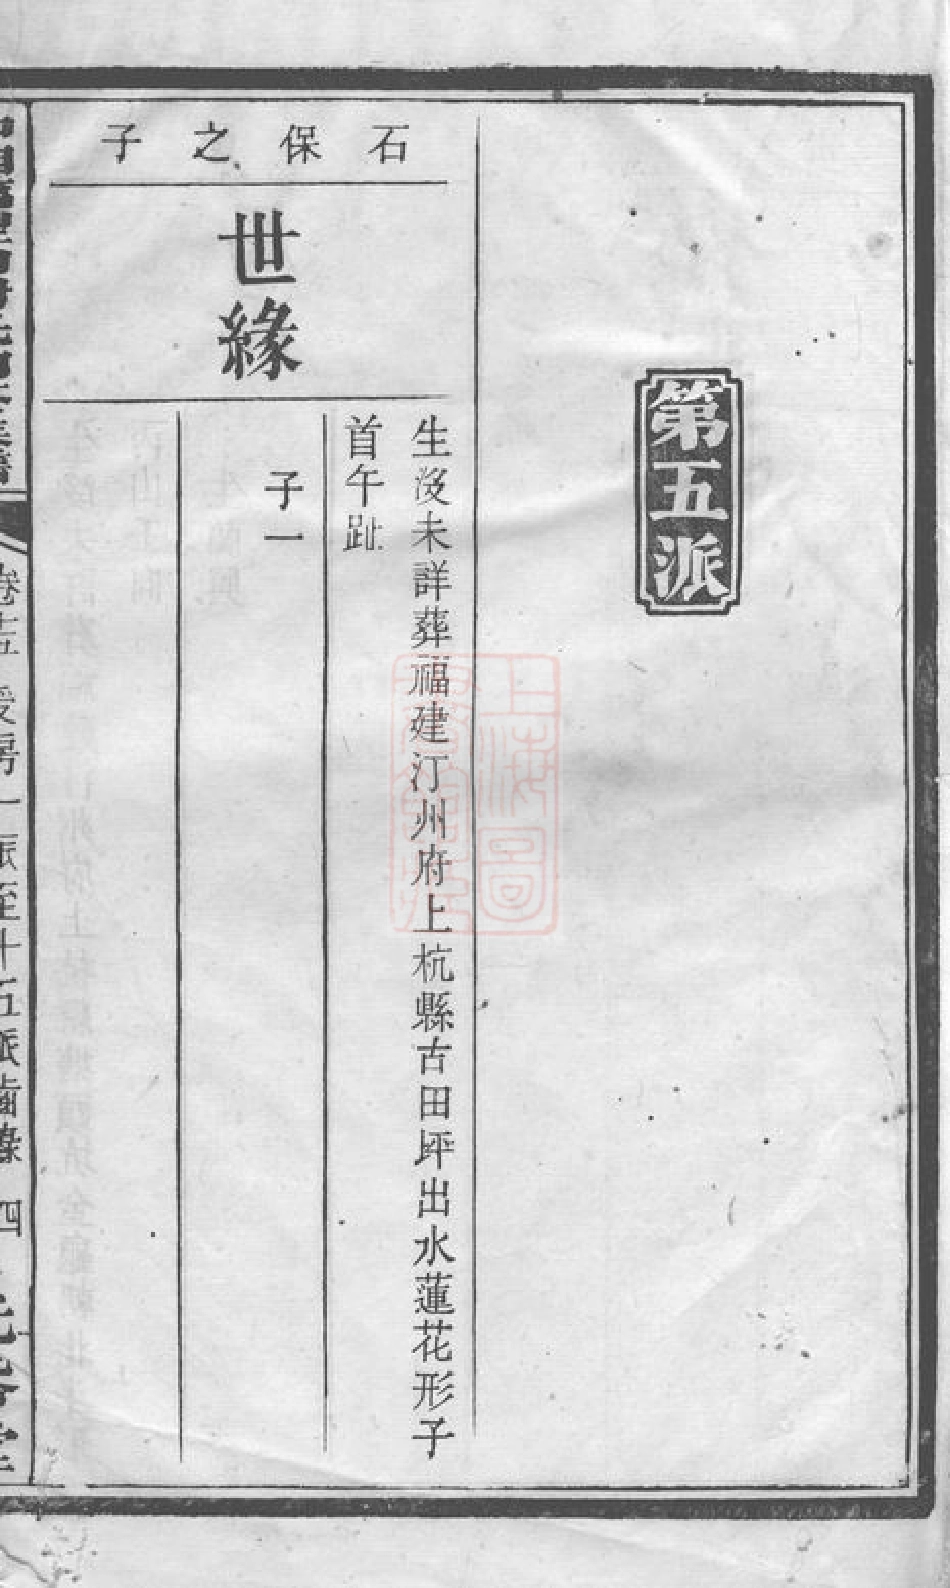 第五派
石保之子
世緣
生沒未詳葬福建汀州府上杭縣古田坪出水蓮花形子
首午趾
子一
卷十五 一派至十五派齒錄 四
上海圖